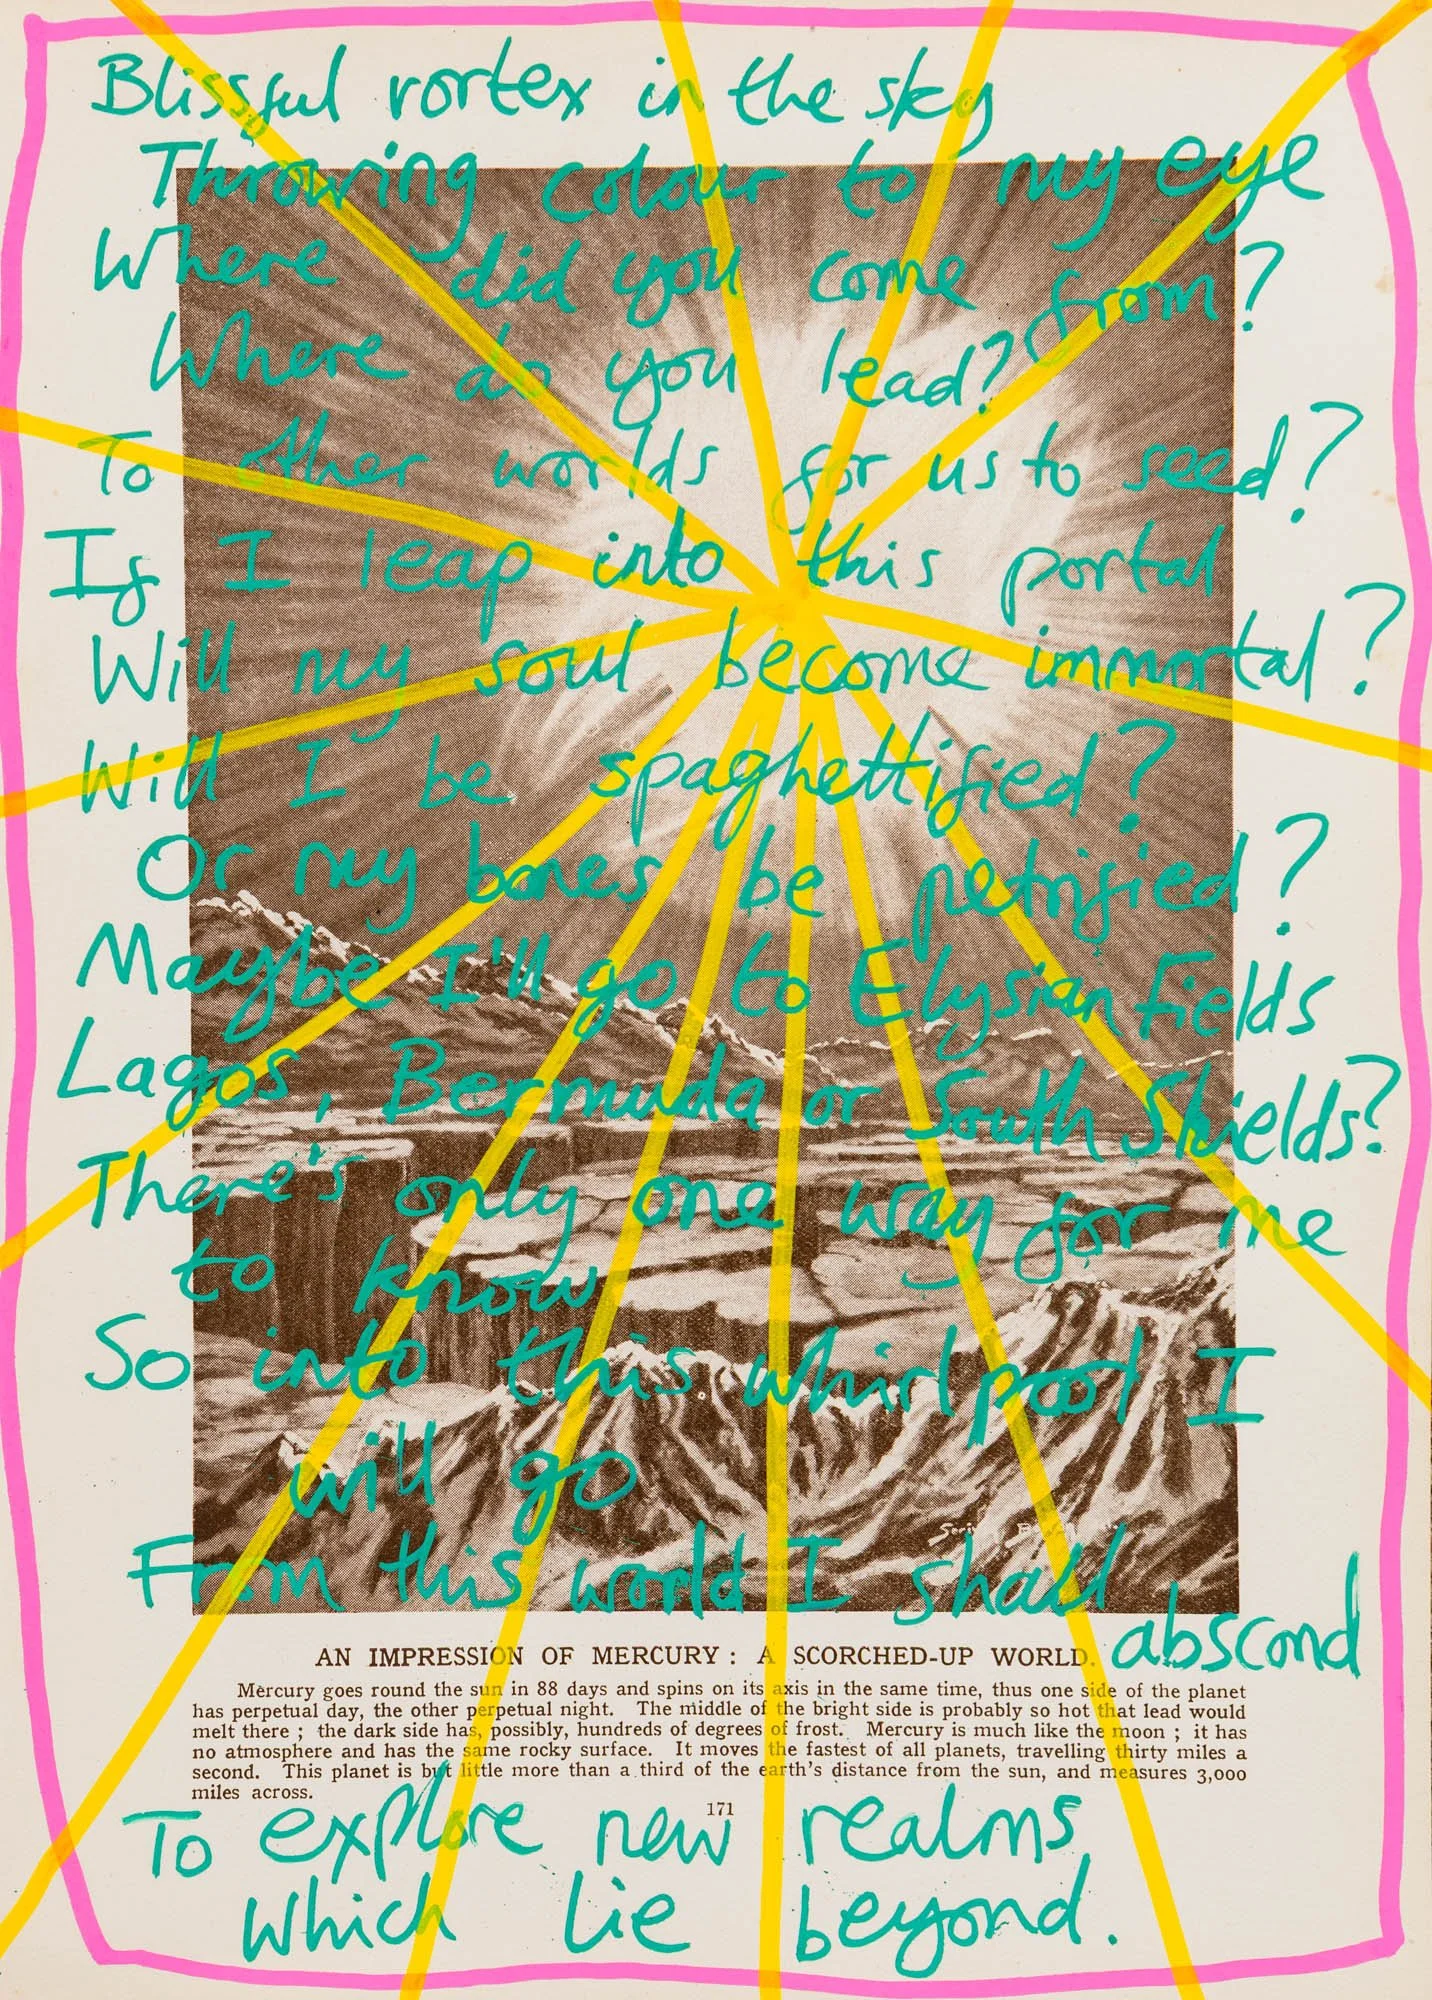 Blissful vortex in the sky
Throwing colour to my eye
Where did you come from?
Where do you lead?
To other worlds for us to seed?
If I leap into this portal
Will my soul become immortal?
Will I be spaghettified?
Or my bones be petrified?
Maybe I'll go to Elysian Fields
Lagos, Bermuda or South Shields?
There's only one way for me
to know
So into this whirlpool I
will go
From this world I shall
abscond
AN IMPRESSION OF MERCURY : A SCORCHED-UP WORLD.
Mercury goes round the sun in 88 days and spins on its axis in the same time, thus one side of the planet
has perpetual day, the other perpetual night. The middle of the bright side is probably so hot that lead would
melt there ; the dark side has, possibly, hundreds of degrees of frost. Mercury is much like the moon ; it has
no atmosphere and has the same rocky surface. It moves the fastest of all planets, travelling thirty miles a
second. This planet is but little more than a third of the earth's distance from the sun, and measures 3,000
miles across.
171
To explore new realms
which lie beyond.